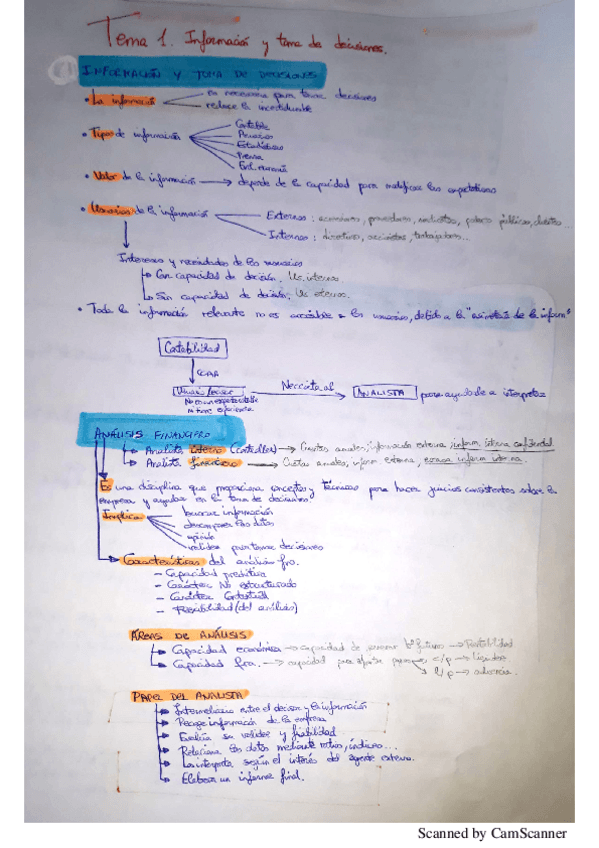 Tema 1. Información y toma de decisiones.
INFORMACIÓN Y TOMA DE DECISIONES
• La información
es necesaria para tomar decisiones
reduce la incertidumbre
• Tipos de información
Contable
Anuarios
Estadísticas
Prensa
• Valor de la información → depende de la capacidad para modificar las expectativas
• Usuarios de la información
Externos: acreedores, proveedores, sindicatos, poderes públicos, clientes...
Internos: directivos, accionistas, trabajadores...
Intereses y necesidades de los usuarios
Con capacidad de decisión. Us. internos
Sin capacidad de decisión. Us. externos.
• Toda la información relevante no es accesible a los usuarios, debido a la "asimetría de la inform"
Contabilidad
Usuario lector
Necesita al
ANALISTA
para ayudarle a interpretar
ANÁLISIS FINANCIERO
Analista interno (Controller) → Cuentas anuales, información externa, inform. interna confidencial
Analista financiero → Cuentas anuales, inform. externa, escasa inform. interna.
Es una disciplina que proporciona conceptos y técnicas para hacer juicios consistentes sobre la
empresa y ayudar en la toma de decisiones.
Implica
buscar información
descomponer los datos
validez para tomar decisiones
Características del análisis fro.
- Capacidad predictiva
- Carácter No estructurado
- Carácter Contextual
- Flexibilidad (del análisis)
ÁREAS DE ANÁLISIS
Capacidad económica → capacidad de generar bº futuros → Rentabilidad
Capacidad fra. → capacidad para afrontar pagos
c/p → liquidez
l/p → solvencia.
PAPEL DEL ANALISTA
Intermediario entre el decisor y la información
Recoge información de la empresa
Evalúa su validez y fiabilidad
Relaciona los datos mediante ratios, índices...
La interpreta según el interés del agente externo.
Elabora un informe final.
Scanned by CamScanner